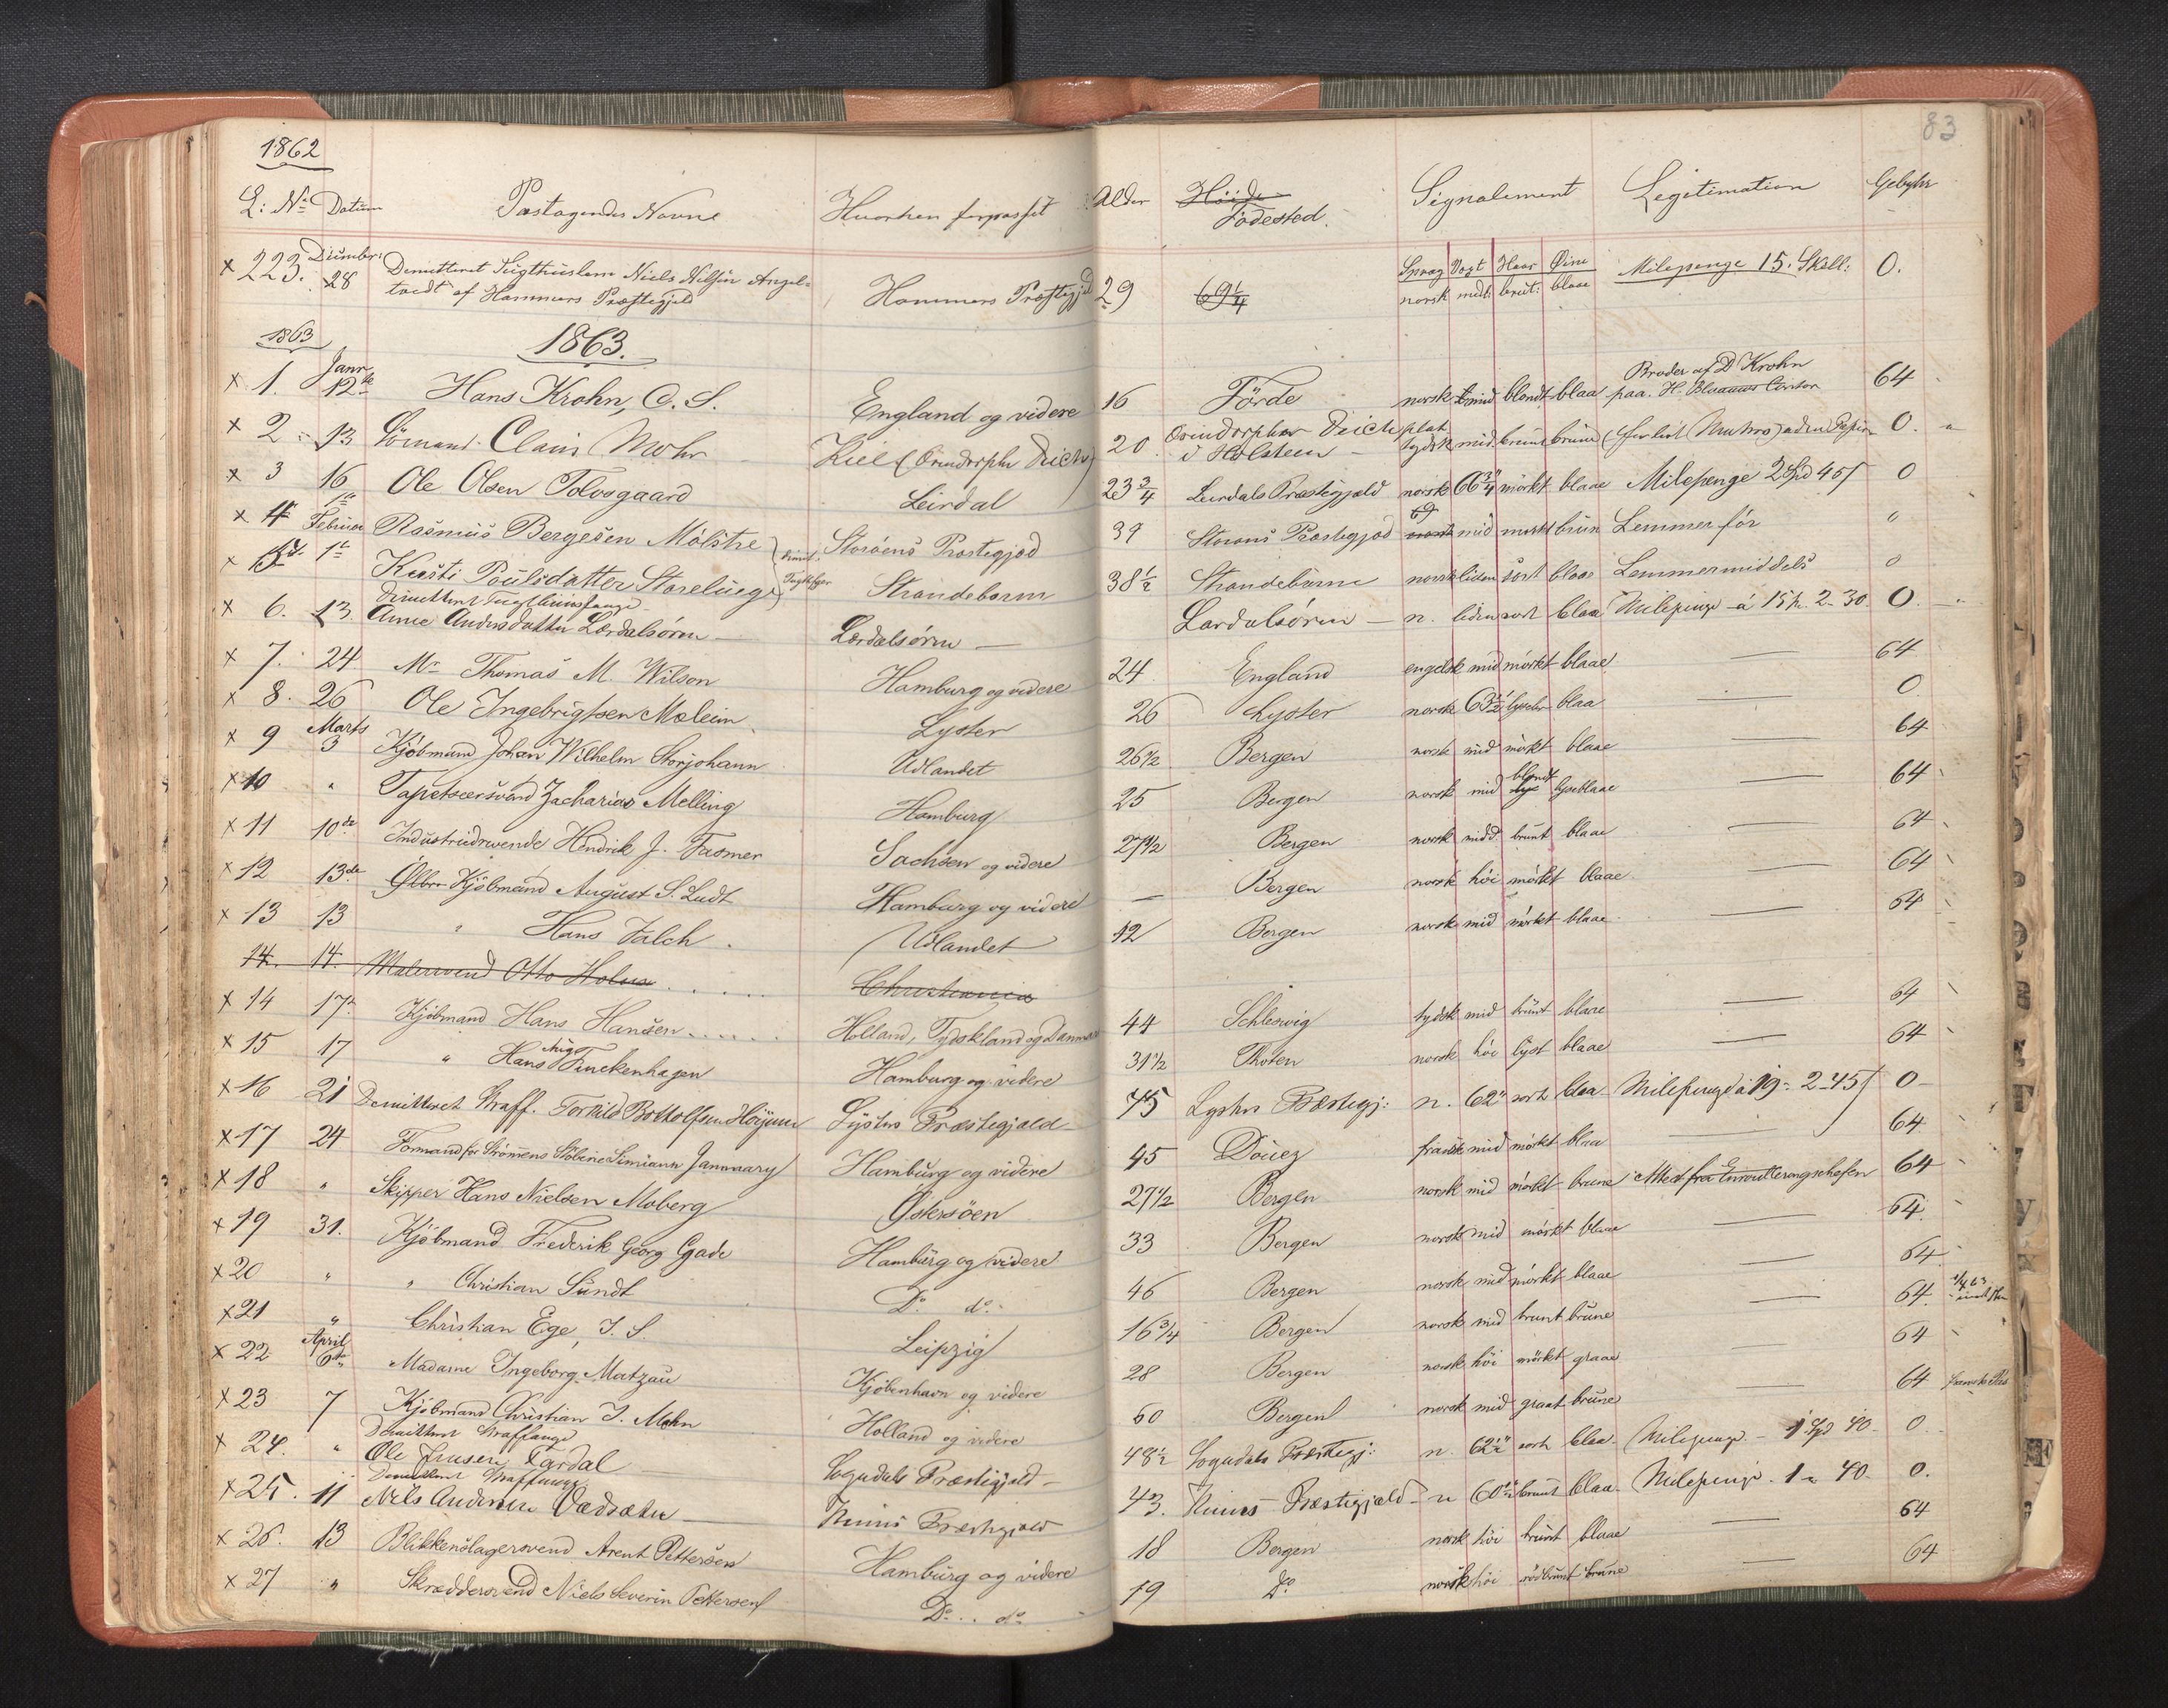 83
1862
L: No Datum Pastagendes Navne Hvorhen forpasset Alder Høide Fødested. Signalement Legitimation Gebyhr
Sprog Vext Haar Øine
x 223. Decimber: 28 Demitteret Tugthuslem Niels Nilsen Angel- Hammers Præstegjeld 29 69 1/4 norsk midl: brut: blaae Milepenge 15. Skill: 0.
tvedt af Hammers Præstegjeld
1863 1863.
x 1. Janr 12te Hans Krohn, C. S. England og videre 16 Förde norsk mid blondt blaa Broder af D Krohn paa H. Blaauws Contor 64
x 2 13 Sömand Claus Mohr Kiel ( Deich) 20 Deich i Holsteen plat tydsk mid brunt brune 0. "
x 3 16 Ole Olsen Tolvsgaard Leirdal 23 3/4 Leirdals Præstegjæld norsk 66 3/4" mörkt blaae Milepenge 2 Spd 45 s 0
x 4 Februar Rasmus Bergesen Mölstre Storöens Præstegjæd 39 Storöens Præstegjæd norsk mid mörkt brun Lemmer för "
x 5 1t Kirsti Poulsdatter Storelung Strandebarm 38 1/2 Strandebarm norsk liden sort blaae Lemmer middels 0
x 6. 13. Demitteret Tugthuusfange
Anne Andersdatter Lærdalsören - Lærdalsören - Lærdalsören - n. liden sort blaa Milepenge á 15 s. 2- 30. 0. "
x 7. 24 Mr Thomas M. Wilson Hamburg og videre 24 England engelsk mid mörkt blaae — 64
x 8. 26 Ole Ingebrigtsen Moleim Lyster 26 Lyster norsk 63 1/2" lysebr blaa — 0
x 9 Marts 3 Kjöbmand Johan Wilhelm Storjohann Udlandet 26 1/2 Bergen norsk mid mörkt blaae — 64
x 10 " Tapetseersvend Zacharias Melling Hamburg 25 Bergen norsk mid blondt lyseblaae — 64
x 11 10de Industridrivende Hendrik J. Fasmer Sachsen og videre 27 1/2 Bergen norsk midd. brunt blaae — 64
x 12 13de Kjöbmand August S. Ludt Hamburg og videre — Bergen norsk höi mörkt blaae — 64
x 13 13 " Hans Falch. Udlandet 42 Bergen norsk mid mörkt blaae — 64
14. 14. Malersvend Otto Holm Christiania
x 14 17de Kjöbmand Hans Hansen Holland, Tydskland og Danmark 44 Schlesvig tydsk mid brunt blaae — 64
x 15 17 " Hans Aug Finckenhagen Hamburg og videre 31 1/2 Thoten norsk höi lyst blaae — 64
x 16 21 Demitteret Straff. Torkild Bottolfsen Höijum Lysters Præstegjæld 75 Lysters Præstegj: n. 62" sort blaa Milepenge á 19 = 2-45 s 0
x 17 24 Formand for Strömmens Stöberie Simiann Jannuary Hamburg og videre 45 Douez fransk mid mörkt blaa — 64
x 18 " Skipper Hans Nielsen Moberg Östersöen 27 1/2 Bergen norsk mid mörkt brune Attest fra Enroulleringschefen 64
x 19 31. Kjöbmand Frederik Georg Gade Hamburg og videre 33 Bergen norsk mid mörkt blaae — 64.
x 20 " " Christian Sundt Do do. 46 Bergen norsk mid mörkt blaae — 64
x 21 " Christian Ege, J. S. Leipzig 16 3/4 Bergen norsk mid brunt brune — 64.
x 22 April 6te Madame Ingeborg Matzau Kjöbenhavn og videre 28 Bergen norsk höi mörkt graae — 64
x 23 7 Kjöbmand Christian J. Mohn Holland og videre 60 Bergen norsk mid graat brune — 64
x 24. " Demitteret Straffange
Ole Jensen Tardal Sogndals Præstegjæld - 48 1/2 Sogndals Præstegj: n. 62 1/2" sort blaa. Milepenge - 1 Spd 40 - 0
x 25. 11 Demitteret Straffange
Nils Andersen Vedsæter — Kinns Præstegjæld 43. Kinns Præstegjæld - n 60" brunt blaa. Milepenge. 1 - 40. 0.
x 26. 13 Blikkenslagersvend Arent Pettersen Hamburg og videre 18 Bergen norsk höi brunt blaae — 64
x 27 " Skræddersvend Niels Severin Pettersen Do.. do 19 Do norsk höi rödbrunt brune — 64